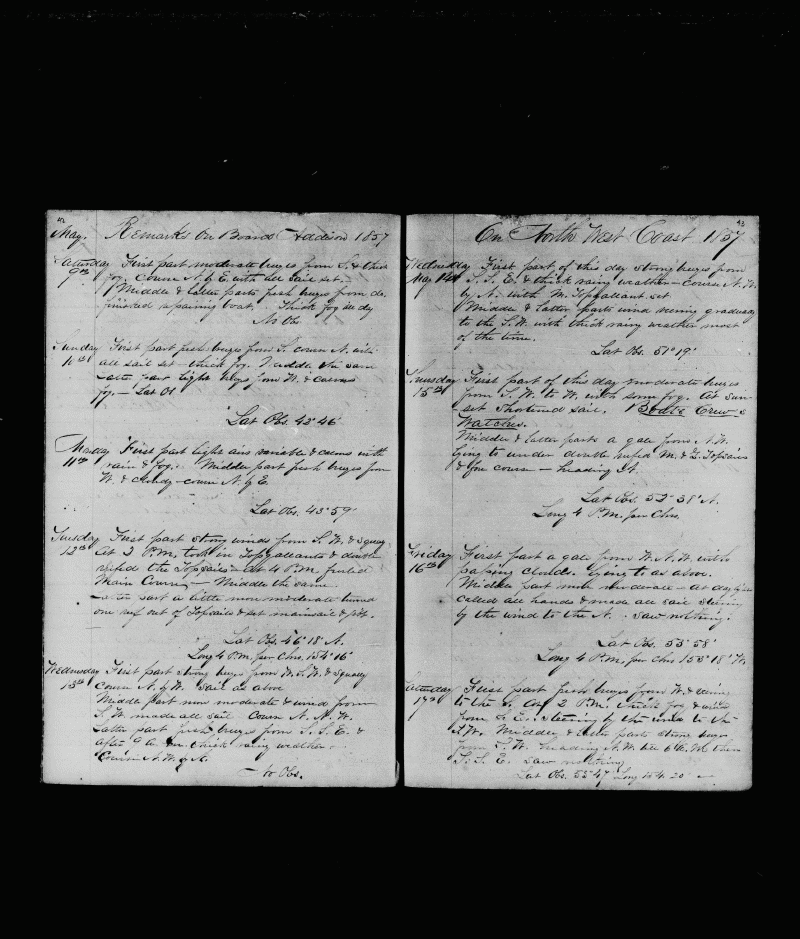 42
May. Remarks on Board Addison 1857
Saturday First part moderate breezes from S. & thick
9th fog. Course N. by E. with all sail set.
Middle & latter parts fresh breezes from do
finished repairing boat. Thick fog
No Obs
Sunday First part fresh breezes from S. course N. with
10th all sail set - thick fog. Middle the same
Latter part light breezes from W. & calms
fog. - Lat Ob
Lat Obs. 43° 46'
Monday First part light airs variable & calms with
11th rain & fog. Middle part fresh breezes from
W. & cloudy - course N. by E
Lat Obs. 45° 59'
Tuesday First part strong winds from S. W. & squally
12th At 2 P.M. took in Topgallants & double
reefed the Topsails - At 4 P.M. furled
Main Course, - Middle the same
Latter part a little more moderate turned
one reef out of Topsails & set mainsail & jib.
Lat Obs. 46° 18' N.
Long 4 P.m. per Chro. 154° 16'
Wednesday First part strong breezes from W. S. W. & squally
13th Course N. by W. Sail as above
Middle part more moderate & wind from
S. W. made all sail Course N. N. W.
Latter part fresh breezes from S. S. E. &
after thick rainy weather.
Course N. W. by N.
No Obs.
43
On North West Coast 1857
First part of this day strong breezes from
May 14 S. S. E. & thick rainy weather - Course N. W.
by N. with M. Topgallant set
Middle & latter parts wind veering gradually
to the S. W. with thick rainy weather most
of the time.
Lat Obs. 51° 19'
First part of this day moderate breezes
15th from S. W. to W. with some fog. At sun-
set shortened sail. Boats Crew's
Watches.
Middle & latter parts a gale from N. W.
lying to under double reefed M. & F. Topsails
& fore course - heading
Lat Obs. 52° 38' N.
Long 4 P.M. per Chro.
Friday First part a gale from W. N. W. with
16th passing clouds. lying to as above.
Middle part much moderate - at day
called all hands & made all sail steering
by the wind to the N. Saw nothing.
Lat Obs. 53° 58'
Long 4 P.M. per Chro 153° 18' W.
Saturday First part fresh breezes from W. & veering
17th to the S. At 2 P.M. thick fog & wind
from S. E. Steering by the wind to the
S. W. Middle & latter parts strong breezes
from S. W. heading N. W. till 6 A.M. then
S. S. E. Saw nothing
Lat Obs. 55° 47' Long 154° 20'